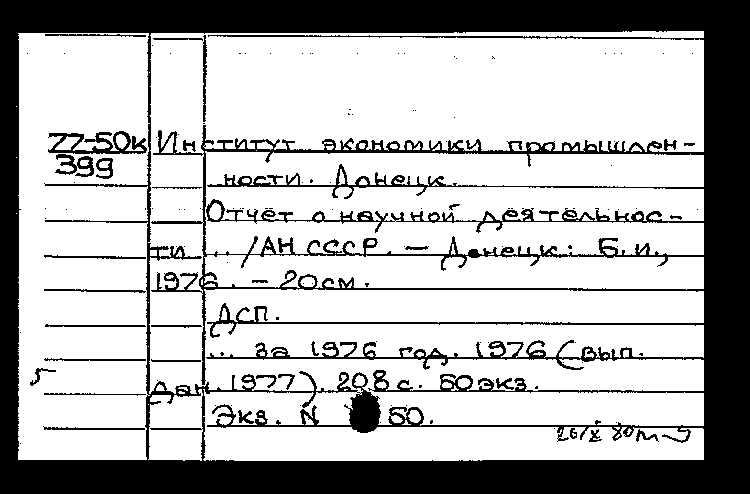 77-50к Институт экономики промышлен-
399 ности. Донецк.
Отчет о научной деятельнос-
ти ... /АН СССР. — Донецк: Б.и.,
1976. — 20см.
ДСП.
... за 1976 год. 1976 (вып.
дан. 1977). 208 с. 50экз.
Экз. N 50.
5